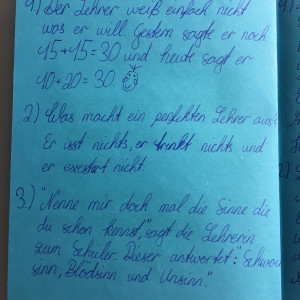 1) Der Lehrer weiß einfach nicht
was er will. Gestern sagte er noch
15+15=30 und heute sagt er
10+20=30.
2) Was macht ein perfekten Lehrer aus?
Er isst nichts, er trinkt nichts und
er existiert nicht.
3.) "Nenne mir doch mal die Sinne die
du schon kennst," sagt die Lehrerin
zum Schüler. Dieser antwortet: "Schwach-
sinn, Blödsinn und Unsinn."